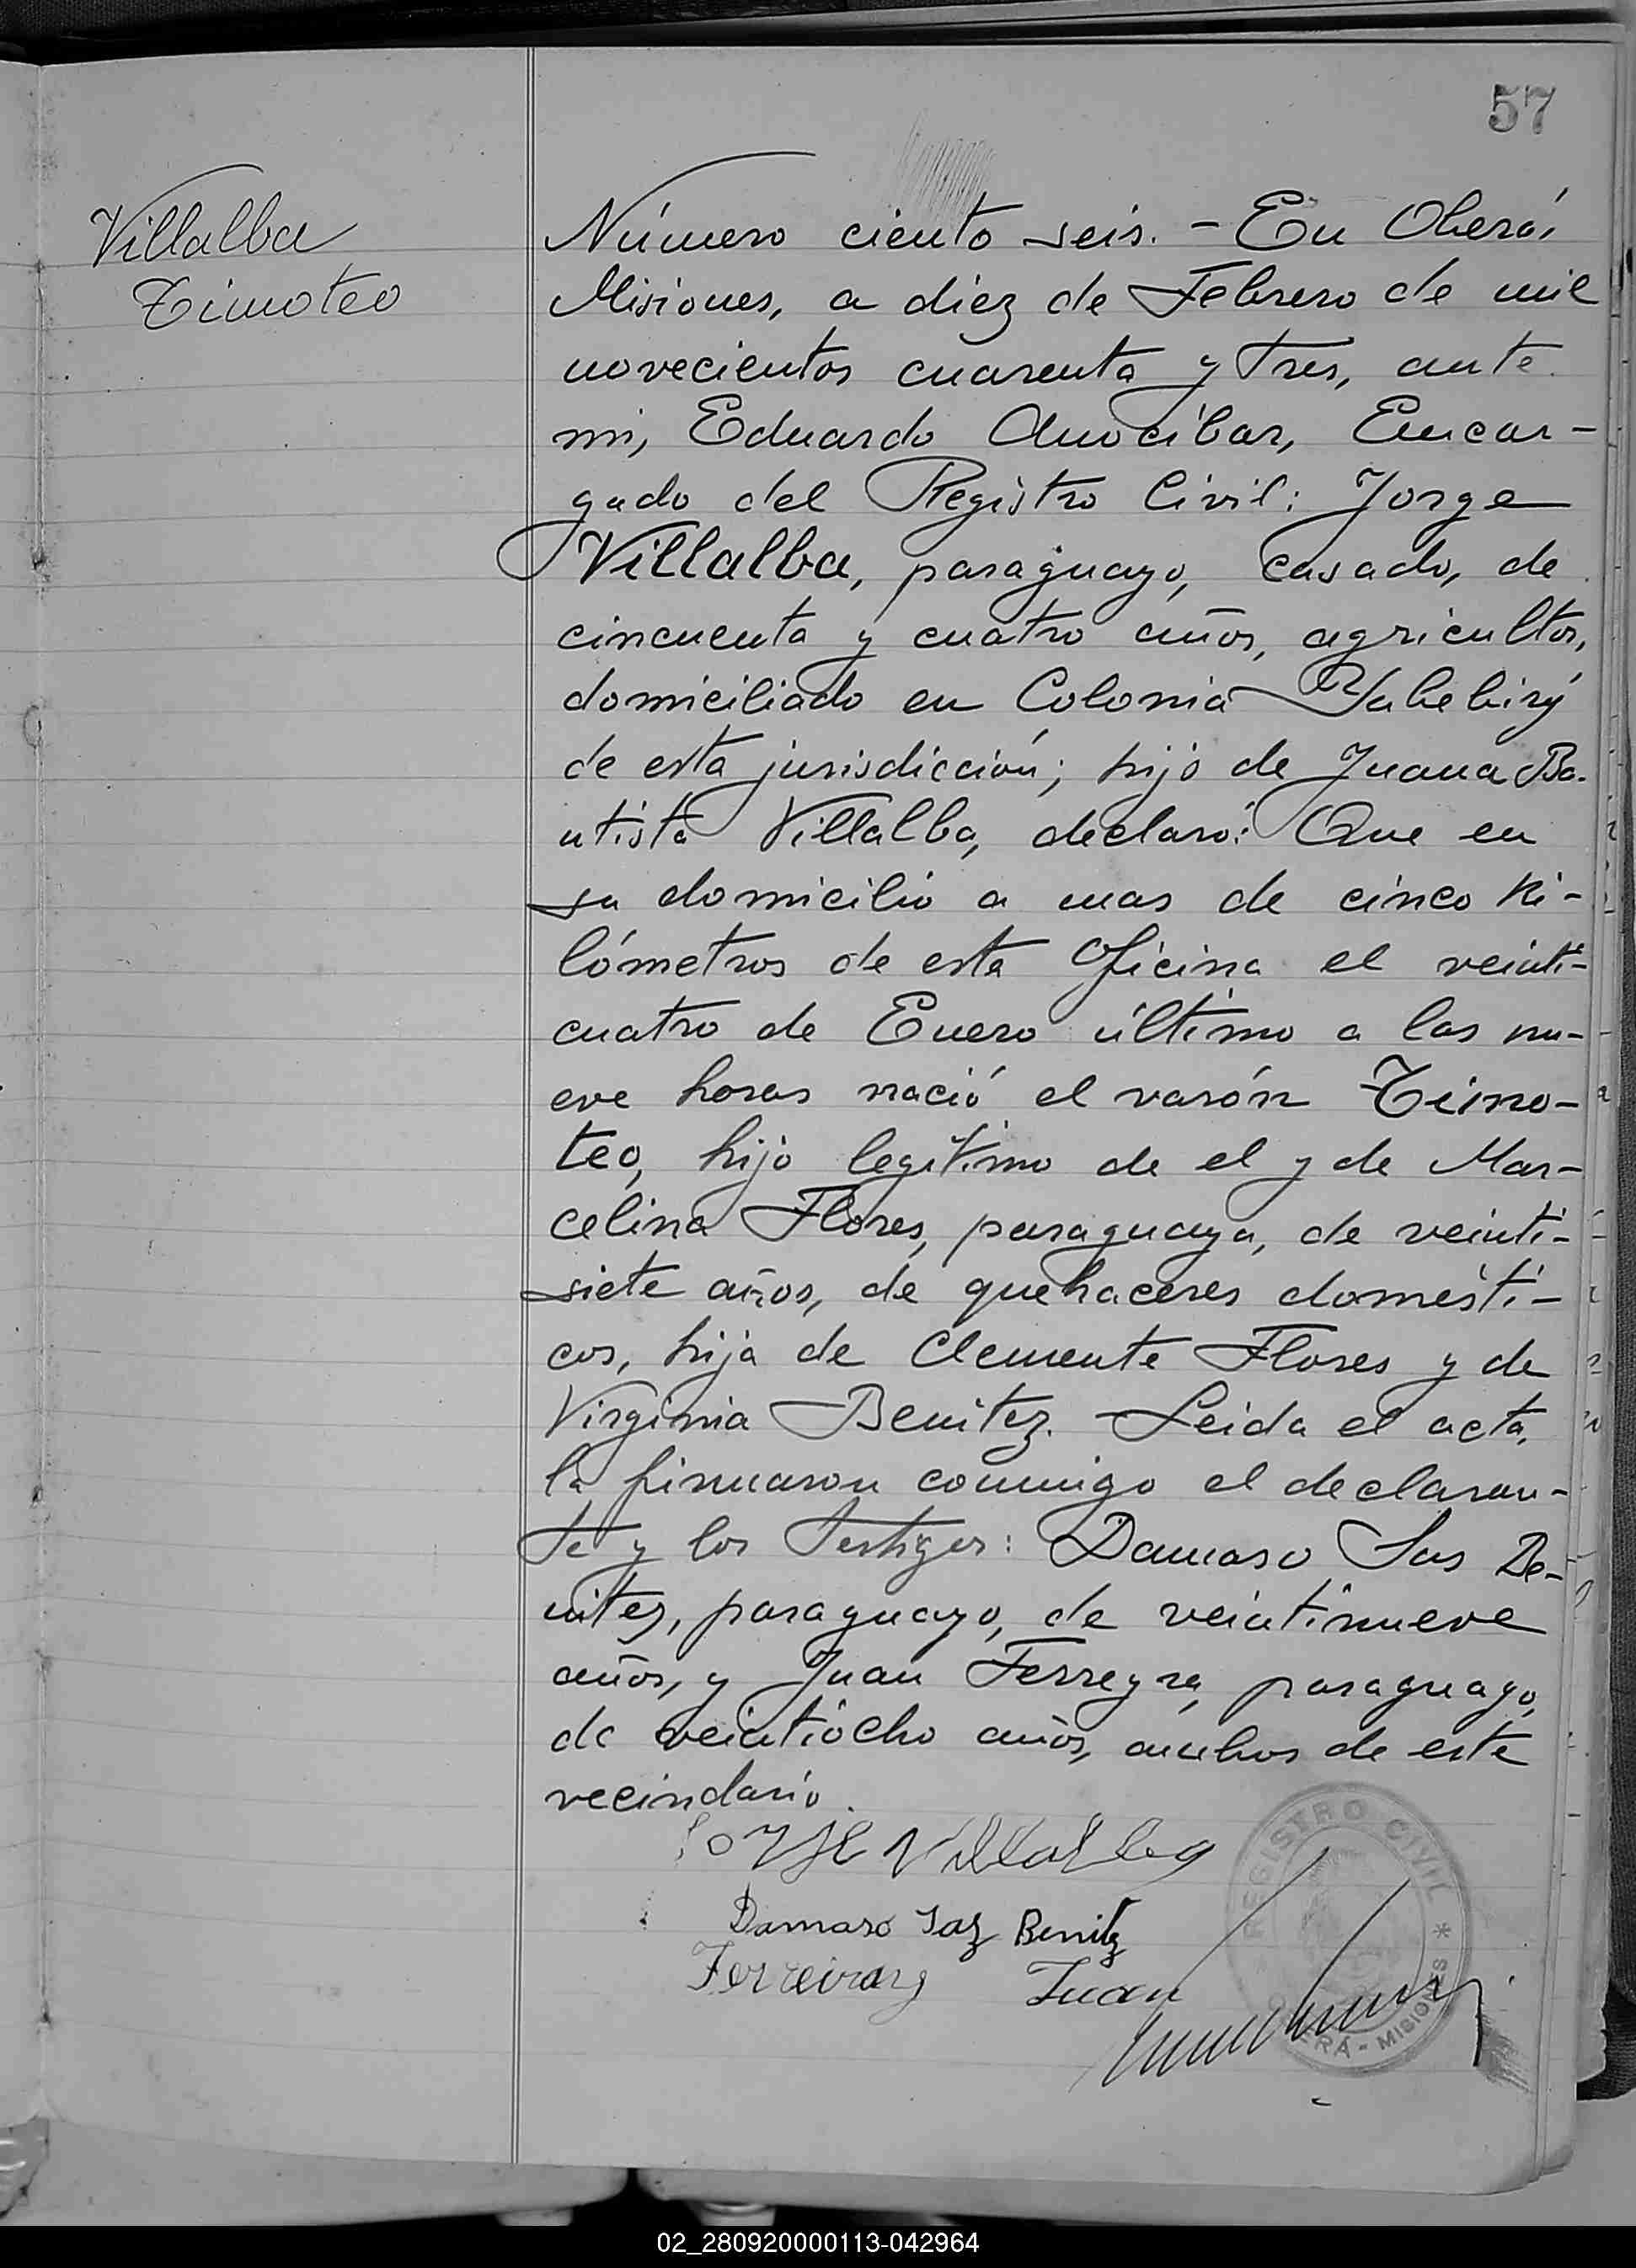 57
Villalba
Timoteo
Número ciento seis. - En Oberá,
Misiones, a diez de Febrero de mil
novecientos cuarenta y tres, ante
mi, Eduardo Anocibar, Encar-
gado del Registro Civil: Jorge
Villalba, paraguayo, casado, de
cincuenta y cuatro años, agricultor,
domiciliado en Colonia Yabebirý
de esta jurisdicción; hijo de Juana Ba-
utista Villalba, declaró: Que en
su domicilio a mas de cinco ki-
lómetros de esta Oficina el veinti-
cuatro de Enero último a las nu-
eve horas nació el varón Timo-
teo, hijo legítimo de el y de Mar-
celina Flores, paraguaya, de veinti-
siete años, de quehaceres domésti-
cos, hija de Clemente Flores y de
Virginia Benitez. Leida el acta,
la firmaron conmigo el declaran-
te y los testigos: Damaso Sas Be-
nitez, paraguayo, de veintinueve
años, y Juan Ferreyra, paraguayo,
de veintiocho años, ambos de este
vecindario.
Jorje Villalba
Damaso Saz Benitez
Ferreira Juan
REGISTRO CIVIL * OBERÁ - MISIONES *
02_280920000113-042964